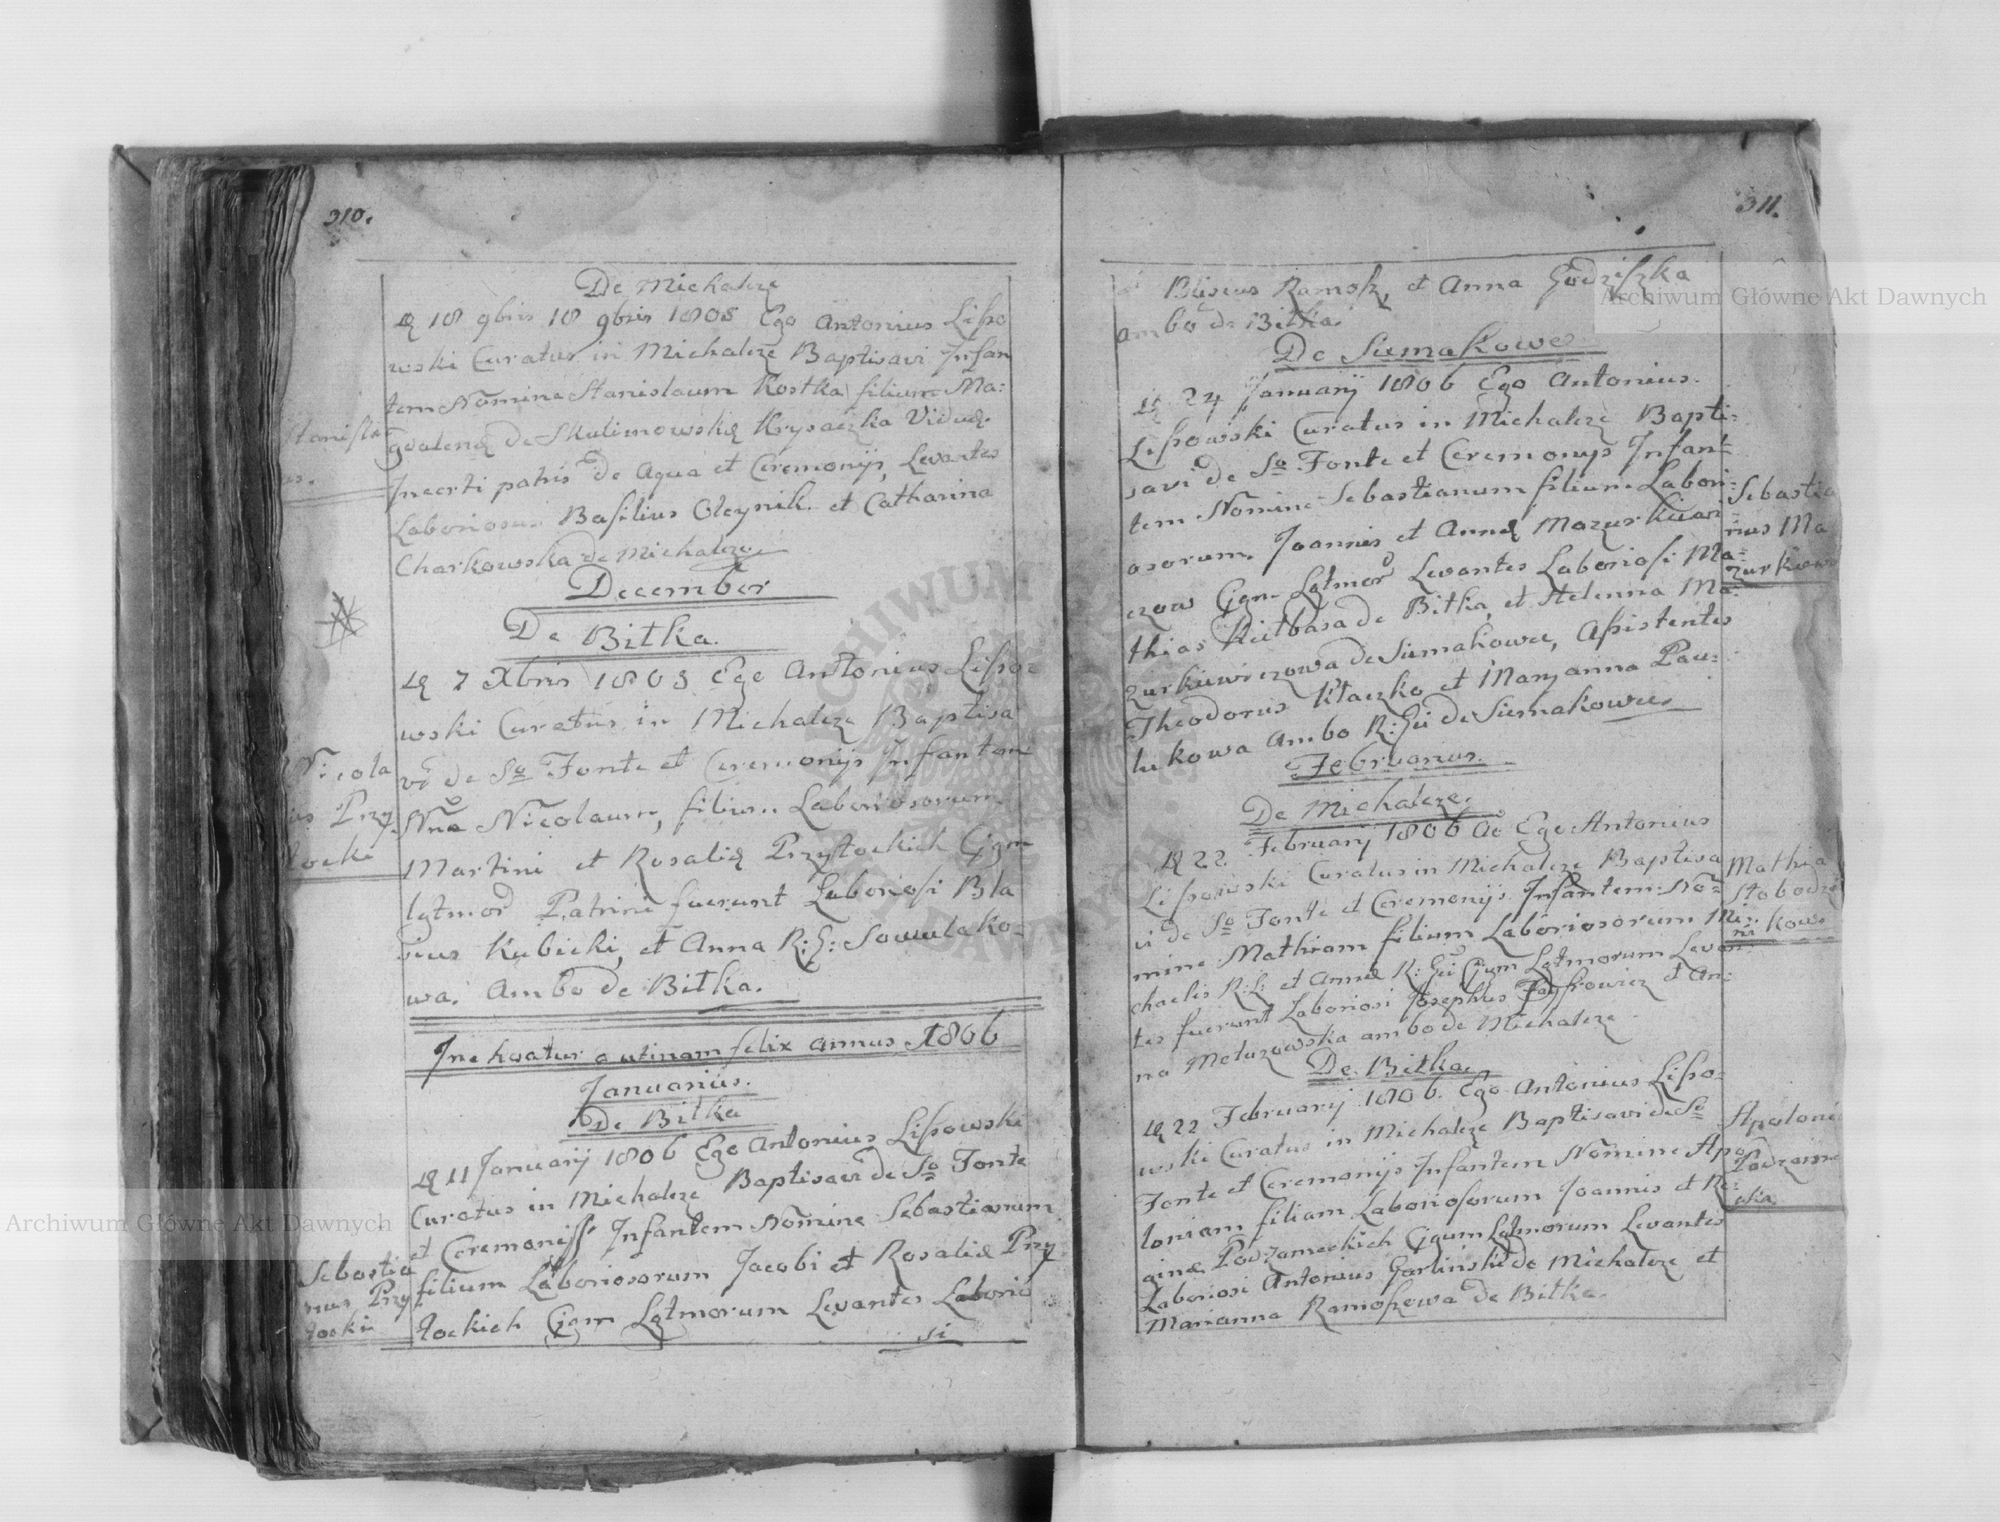 310.
De Michalcze
18 9bris 18 9bris 1805 Ego Antonius Lisso
wski Curatus in Michalcze Baptisavi Infan
tem Nomine Stanislaum Kostka filium Ma:
gdalenæ de Skulimowskæ Krysaczka Viduæ.
Incerti patris de Aqua et Ceremonijs, Levantes
Laboriosus Basilius Oleynik et Catharina
Charkowska de Michalcze
Stanisla
us.
December
De Bitka.
7 Xbris 1805 Ego Antonius Lisso:
wski Curatus in Michalcze Baptisa
vi de So Fonte et Ceremonijs Infantem
Nne Nicolaum, filium Laboriosorum
Martini et Rosaliæ Przytockich Cjgm
lgtmor Patrini fuerunt Laboriosi Bla
sius Kubicki, et Anna R: G: Sowulako:
wa. Ambo de Bitka.
Nicola
us Przy
tocki
Inchoatur o utinam felix annus 1806
Januarius.
De Bitka
11 Januarij 1806 Ego Antonius Lissowski
Curatus in Michalcze Baptisavi de So Fonte
et Ceremonijs Infantem Nomine Sebastianum
filium Laboriosorum Jacobi et Rosaliæ Przy
tockich Cjgm Lgtmorum Levantes Laborio
si
Sebastia
nus Przy
tocki
311.
Ramosz, et Anna Godziszka
ambo de Bitka.
De Siemakowce
24 Januarij 1806 Ego Antonius
Lissowski Curatus in Michalcze Bapti:
savi de So Fonte et Ceremonijs Infan
tem Nomine Sebastianum filium Labori:
osorum Joannis et Annæ Mazurkiewi
czow Cjgm Lgtmor Levantes Laboriosi Ma:
thias Kiełbasa de Bitka, et Helenna Ma:
zurkiewiczowa de Siemakowce, Assistentes
Theodorus Kłaczko et Maryanna Pau:
lukowa Ambo R: Gu de Siemakowce
Sebastia
nus Ma
zurkiewi
Februarius.
De Michalcze.
22 February 1806 Ao Ego Antonius
Lissowski Curatus in Michalcze Baptisa
vi de So Fonte et Ceremonijs Infantem No:
mine Mathiam filium Laboriosorum Mi:
chaelis R: L: et Annæ R: Gu Cjgm Lgtmorum Levan
tes fuerunt Laboriosi Josephus et An:
na ambo de Michalcze
Mathia
Słobodzi
De Bitka.
22 February 1806. Ego Antonius Lisso:
wski Curatus in Michalcze Baptisavi de So
Fonte et Ceremonijs Infantem Nomine Apo
loniam filiam Laboriosorum Joannis et Re:
ginæ Podzameckich Cjgum Lgtmorum Levantes
Laboriosi Antonius Garliński de Michalcze et
Marianna Ramoszowa de Bitka.
Apoloni
Podzame
cka
Archiwum Główne Akt Dawnych
Archiwum Główne Akt Dawnych